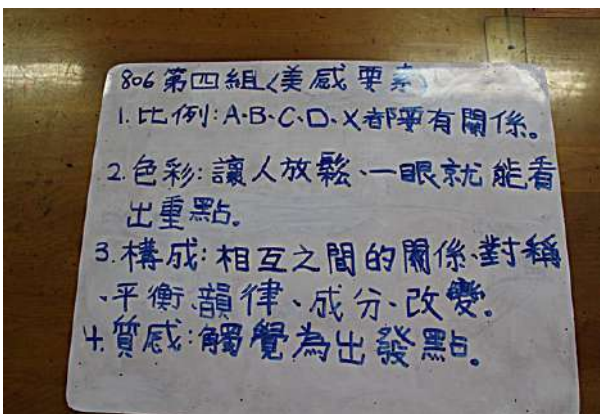 806第四組<美感要素>
1.比例:A、B、C、D、X都要有關係。
2.色彩:讓人放鬆、一眼就能看
出重點。
3.構成:相互之間的關係、對稱
、平衡、韻律、成分、改變。
4.質感:觸覺為出發點。